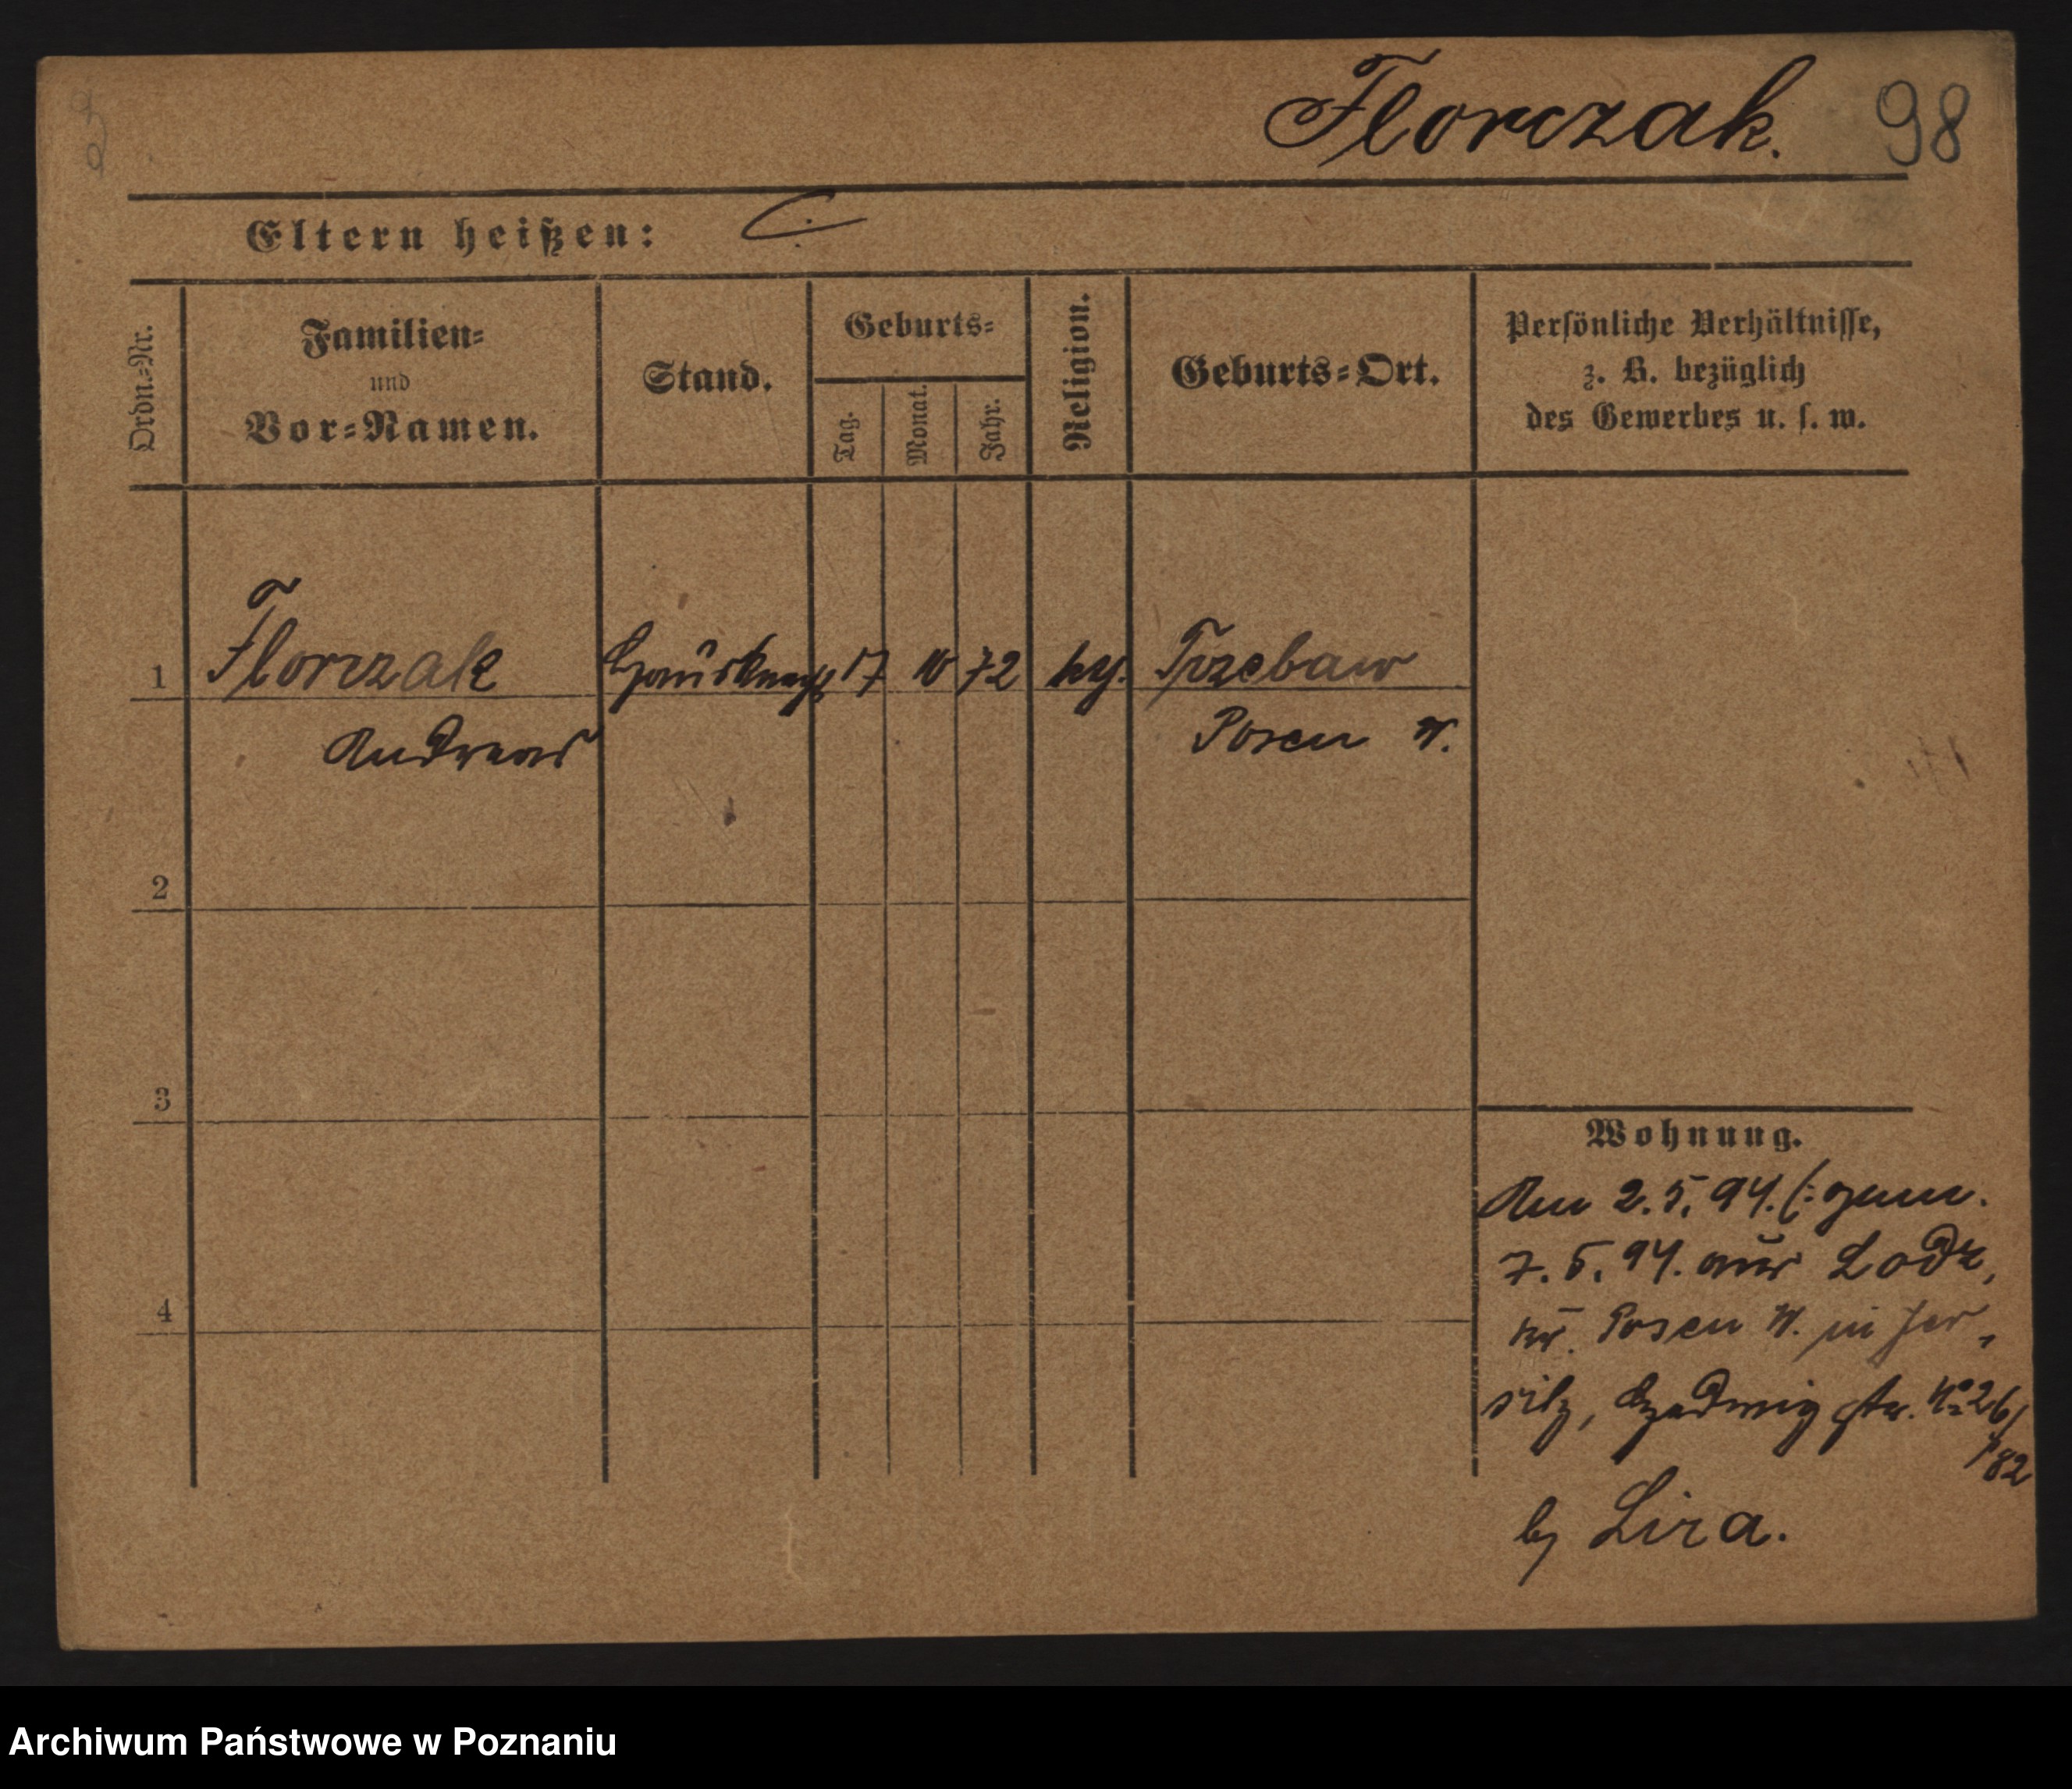 Florczak. 98
Eltern heißen:
Ordn.=Nr.
Familien=
und
Vor=Namen.
Stand.
Geburts=
Tag.
Monat.
Jahr.
Religion.
Geburts=Ort.
Persönliche Verhältnisse,
z. B. bezüglich
des Gewerbes u. s. w.
1 Florczak Hausknecht 17 10 72 kth. Trzebaw
Andreas Posen W.
2
3
4
Wohnung.
Am 2. 5. 94. (: gem.
7. 5. 94. aus Lodz,
Kr. Posen W. in Jer-
sitz, Hedwig str. No 26/
82
by Lira.
Archiwum Państwowe w Poznaniu